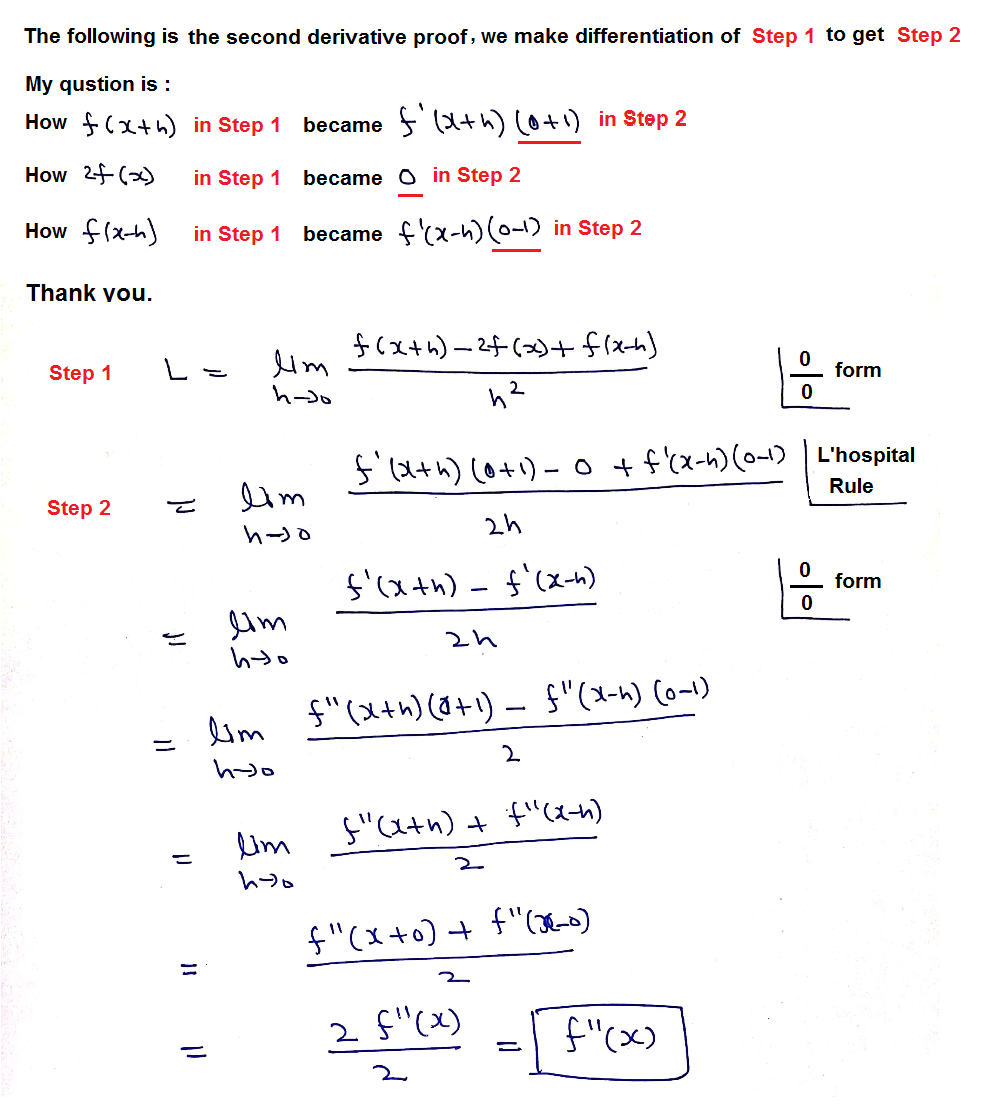 The following is the second derivative proof, we make differentiation of Step 1 to get Step 2
My qustion is :
How f(x+h) in Step 1 became f'(x+h)(0+1) in Step 2
How 2f(x) in Step 1 became 0 in Step 2
How f(x-h) in Step 1 became f'(x-h)(0-1) in Step 2
Thank you.
Step 1 L = lim h→0 f(x+h) - 2f(x) + f(x-h) / h² | 0/0 form
Step 2 = lim h→0 f'(x+h)(0+1) - 0 + f'(x-h)(0-1) / 2h | L'hospital Rule
= lim h→0 f'(x+h) - f'(x-h) / 2h | 0/0 form
= lim h→0 f''(x+h)(0+1) - f''(x-h)(0-1) / 2
= lim h→0 f''(x+h) + f''(x-h) / 2
= f''(x+0) + f''(x-0) / 2
= 2 f''(x) / 2 = f''(x)